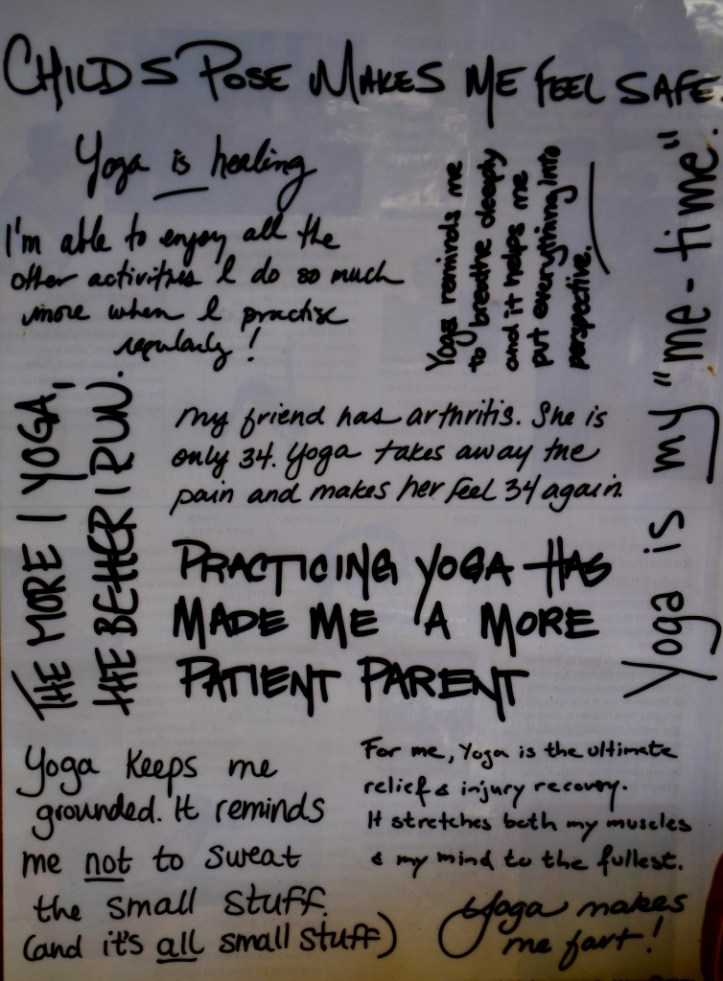 CHILDS POSE MAKES ME FEEL SAFE.
Yoga is healing
I'm able to enjoy all the
other activities I do so much
more when I practise
regularly!
Yoga reminds me
to breathe deeply
and it helps me
put everything into
perspective.
Yoga is my "me-time".
THE MORE I YOGA,
THE BETTER I RUN.
My friend has arthritis. She is
only 34. Yoga takes away the
pain and makes her feel 34 again.
PRACTICING YOGA HAS
MADE ME A MORE
PATIENT PARENT
Yoga keeps me
grounded. It reminds
me not to sweat
the small stuff.
(and it's all small stuff)
For me, Yoga is the ultimate
relief & injury recovery.
It stretches both my muscles
& my mind to the fullest.
Yoga makes
me fart!